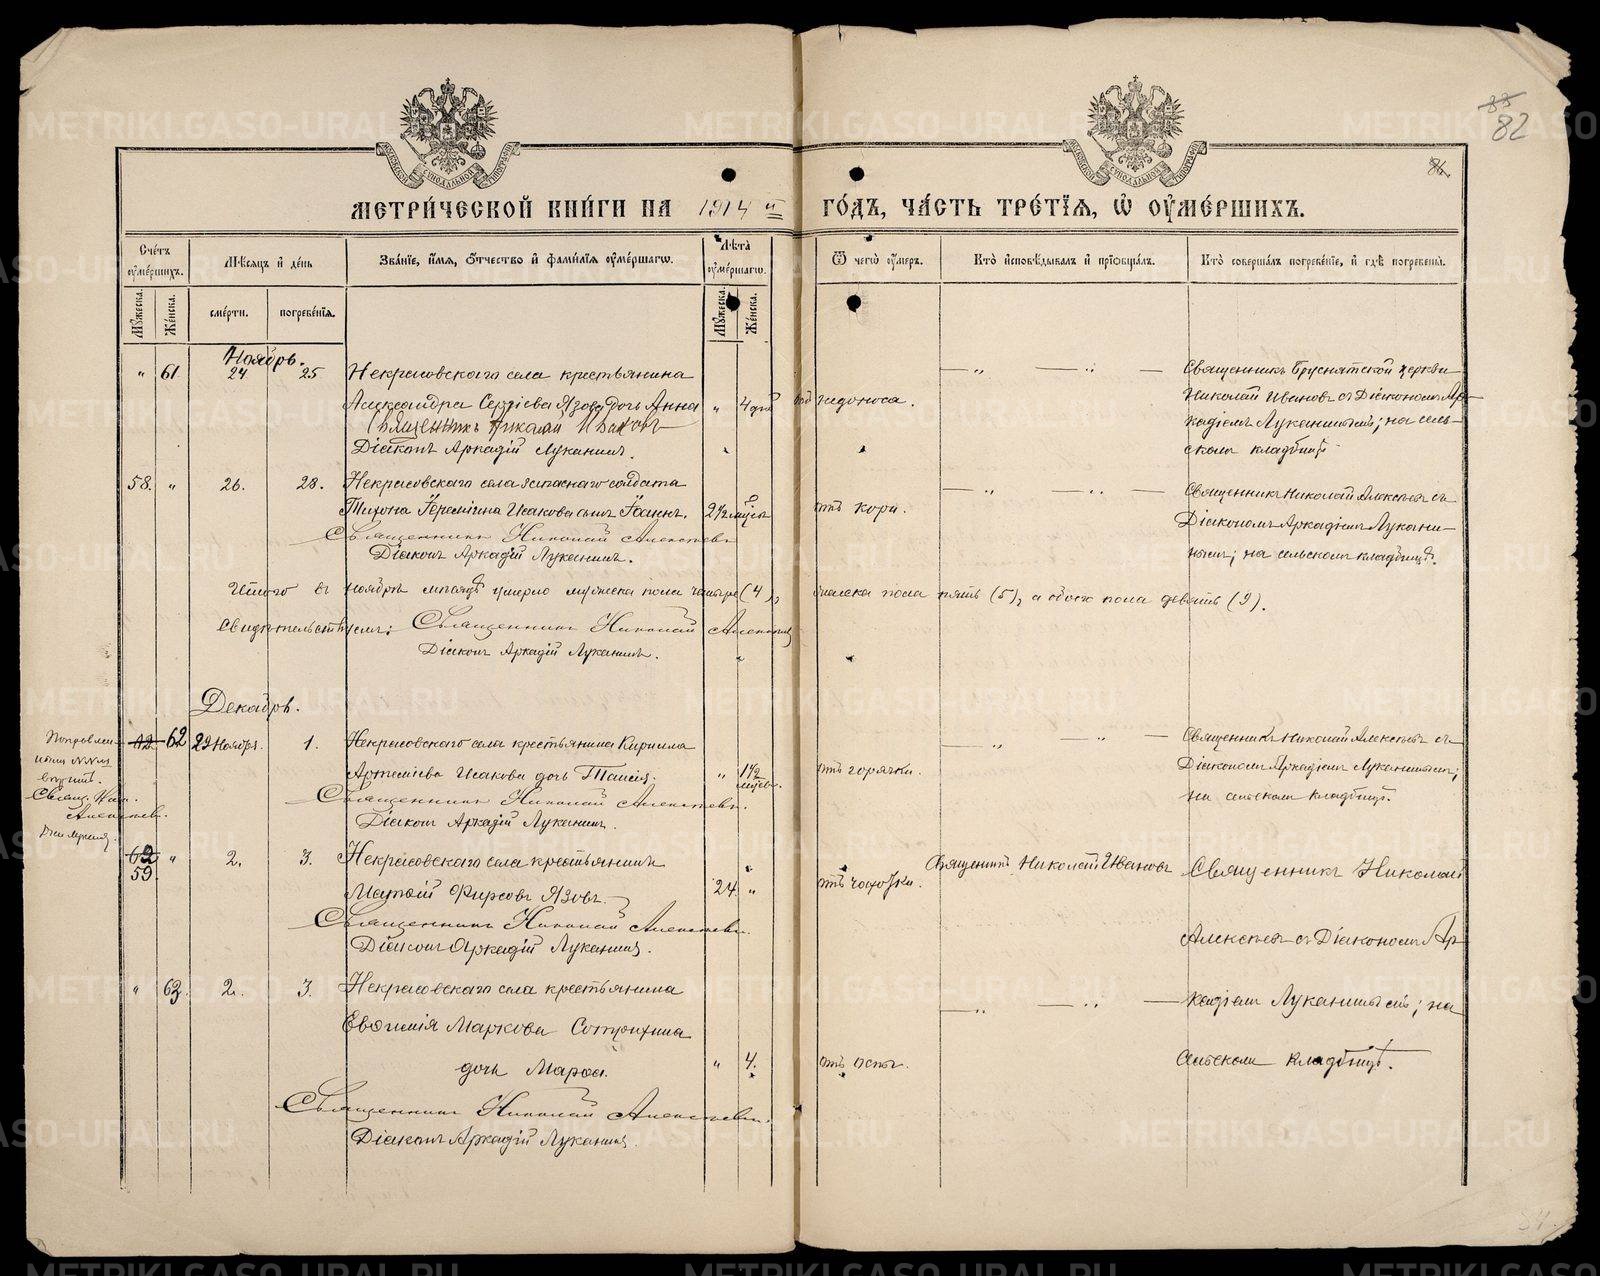 83
82
84
МЕТРИЧЕСКОЙ КНИГИ НА 1914 й ГОДЪ, ЧАСТЬ ТРЕТІЯ, Ѿ ОУМЕРШИХЪ.
Счетъ оумершихъ.
Мѣсяцъ и день
Званіе, имя, отчество и фамилія оумершагѡ.
Лѣта оумершагѡ.
Ѿ чегѡ оумеръ.
Кто исповѣдывалъ и пріобщалъ.
Кто совершалъ погребеніе, и гдѣ погребены.
Мужеска.
Женска.
смерти.
погребенія.
Мужеска.
Женска.
Ноябрь.
" 61 24 25 Некрасовскаго села крестьянина — „ — „ — Священникъ Бруснятской церкви
Александра Сергіева Язова дочь Анна " 4 дней отъ недоноса. Николай Ивановъ съ Діакономъ Ар-
Священникъ Николай Ивановъ кадіемъ Луканинымъ; на сель-
Діаконъ Аркадій Луканинъ. скомъ кладбищѣ
58. " 26. 28. Некрасовскаго села запаснаго солдата — „ — „ — Священникъ Николай Алексѣевъ съ
Тихона Іереміина Исакова сынъ Іоаннъ. 2½ мѣсяц отъ кори. Діакономъ Аркадіемъ Лукани-
Священникъ Николай Алексѣевъ
Діаконъ Аркадій Луканинъ. нымъ; на сельскомъ кладбищѣ.
Итого въ ноябрѣ мѣсяцѣ умерло мужеска пола четыре (4), женска пола пять (5), а обоего пола девять (9).
Свидѣтельствуемъ: Священникъ Николай Алексѣевъ
Діаконъ Аркадій Луканинъ.
Декабрь.
62 29 Ноября. 1. Некрасовскаго села крестьянина Кирилла — „ — „ — Священникъ Николай Алексѣевъ съ
Артемиева Исакова дочь Таисія. " 1½ мѣсяц. отъ горячки. Діакономъ Аркадіемъ Луканинымъ;
Священникъ Николай Алексѣевъ. на сельскомъ кладбищѣ.
Діаконъ Аркадій Луканинъ.
Свящ. Ник.
Алексѣевъ.
62 " 2. 3. Некрасовскаго села крестьянинъ Священникъ Николай Ивановъ Священникъ Николай
59
Матѳій Фирсовъ Язовъ. 24. " отъ чахотки.
Священникъ Николай Алексѣевъ. Алексѣевъ съ Діакономъ Ар-
Діаконъ Аркадій Луканинъ.
" 63. 2. 3. Некрасовскаго села крестьянина — „ — „ — кадіемъ Луканинымъ; на
Евѳимія Маркова Сотрихина
дочь Марѳа. " 4. отъ оспы. сельскомъ кладбищѣ.
Священникъ Николай Алексѣевъ.
Діаконъ Аркадій Луканинъ.
METRIKI.GASO-URAL.RU